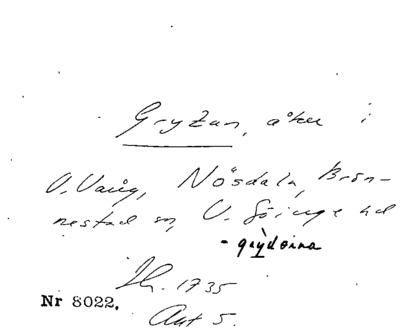 Gryzan, åker i
V. Vång, Nösdala, Brön-
nestad sn, V. Göinge hd
- grỳdorna
Jb. 1735
Nr 8022.
Akt 5.